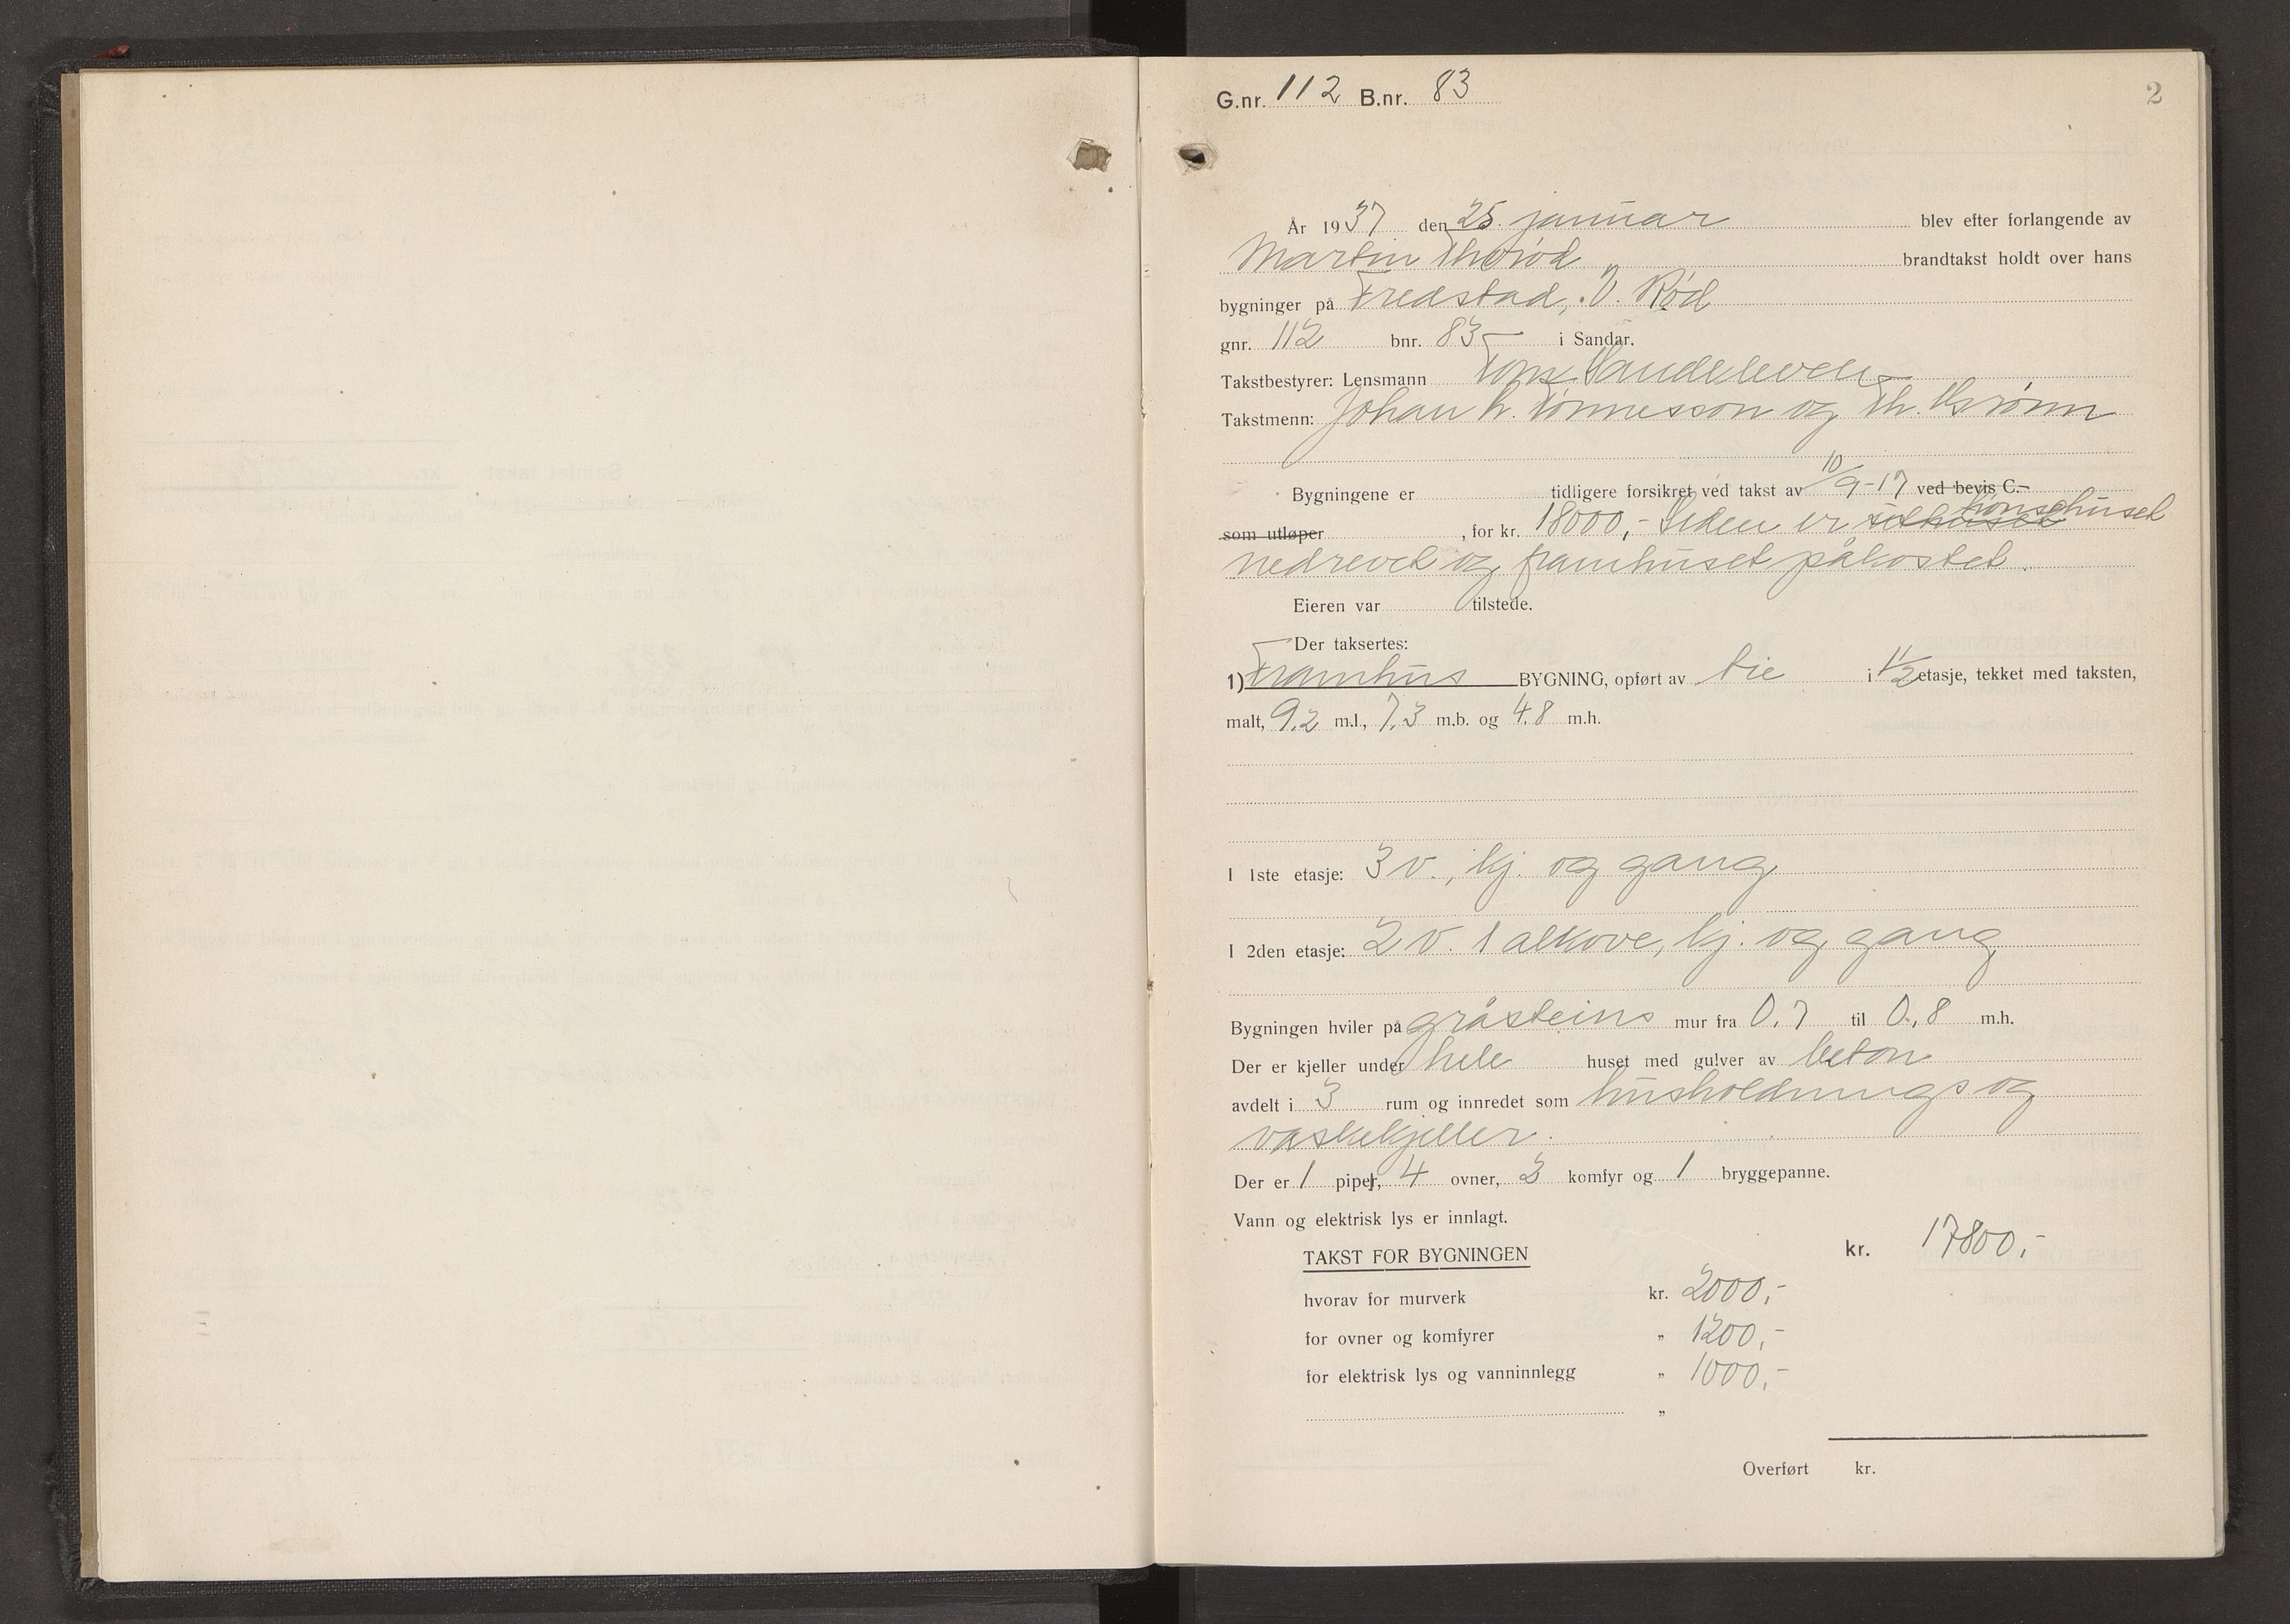 G.nr. 112 B.nr. 83
2
År 1937 den 25. januar blev efter forlangende av
Martin Thorød brandtakst holdt over hans
bygninger på Fredstad, V. Rød
gnr. 112 bnr. 83 i Sandar.
Takstbestyrer: Lensmann Tony Sandeleven
Takstmenn: Johan h. Tønnesson og Th. Brønn
Bygningene er tidligere forsikret ved takst av 10/9-17 ved bevis C.
hønsehuset
som utløper , for kr. 18000,- Siden er uthuset
nedrevet og framhuset påkostet.
Eieren var tilstede.
Der taksertes:
1) Framhus BYGNING, opført av tre i 1 1/2 etasje, tekket med taksten,
malt, 9.2 m.l., 7.3 m.b. og 4.8 m.h.
I 1ste etasje: 3 v., kj. og gang
I 2den etasje: 2 v. 1 alkove, kj. og gang
Bygningen hviler på gråsteins mur fra 0.7 til 0.8 m.h.
Der er kjeller under hele huset med gulver av beton
avdelt i 3 rum og innredet som husholdnings og
vaskekjeller.
Der er 1 piper, 4 ovner, 2 komfyr og 1 bryggepanne.
Vann og elektrisk lys er innlagt.
TAKST FOR BYGNINGEN kr. 17800,-
hvorav for murverk kr. 2000,-
for ovner og komfyrer „ 1200,-
for elektrisk lys og vanninnlegg „ 1000,-
„
Overført kr.